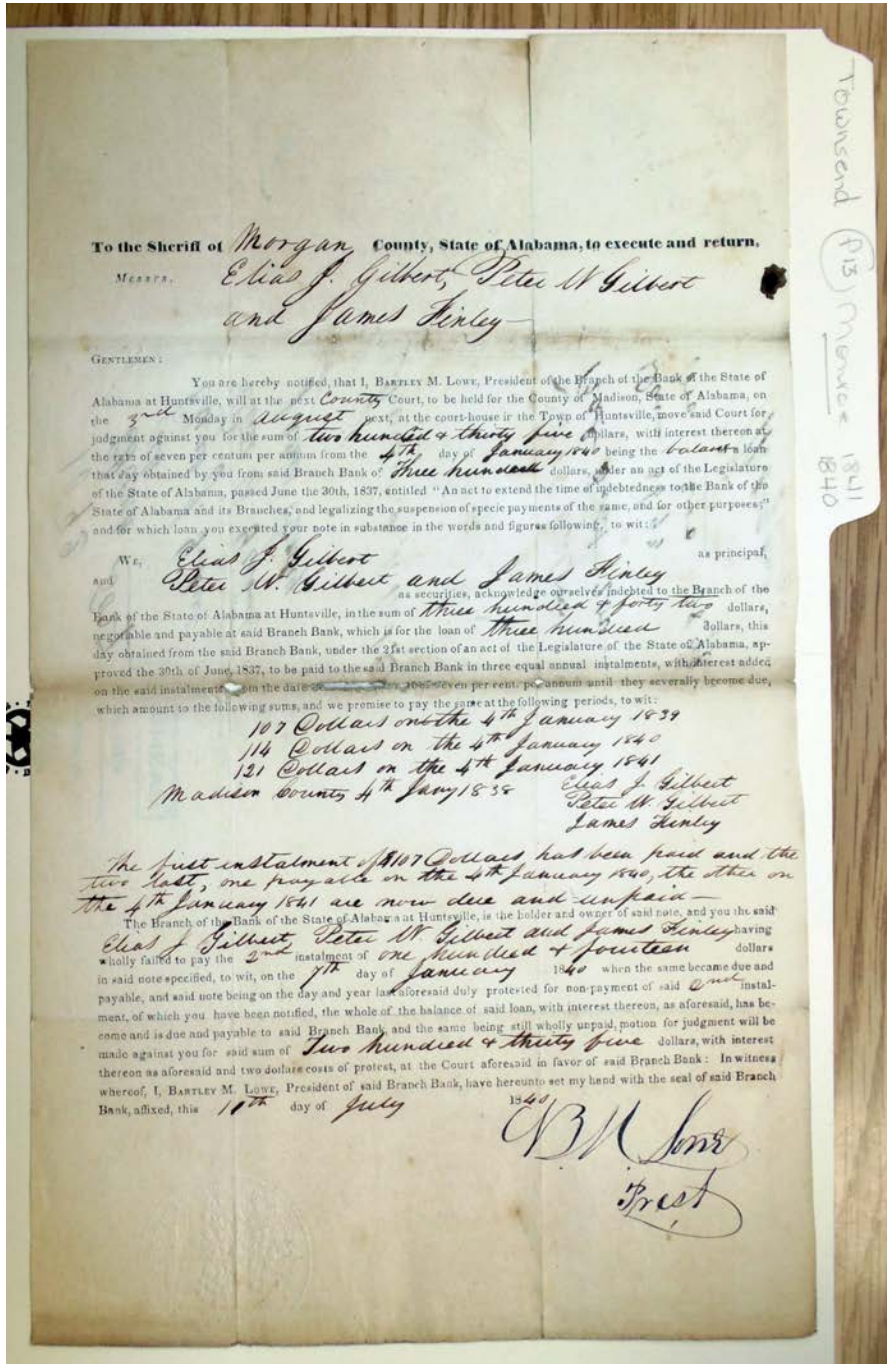 To the Sheriff of Morgan County, State of Alabama, to execute and return.
Messrs. Elias J. Gilbert, Peter W Gilbert
and James Finley
GENTLEMEN:
You are hereby notified, that I, BARTLEY M. LOWE, President of the Branch of the Bank of the State of
Alabama at Huntsville, will at the next County Court, to be held for the County of Madison, State of Alabama, on
the 3rd Monday in August next, at the court-house in the Town of Huntsville, move said Court for
judgment against you for the sum of two hundred & thirty five dollars, with interest thereon at
the rate of seven per centum per annum from the 4th day of January 1840 being the balance a loan
that day obtained by you from said Branch Bank of Three hundred dollars, under an act of the Legislature
of the State of Alabama, passed June the 30th, 1837, entitled "An act to extend the time of indebtedness to the Bank of the
State of Alabama and its Branches, and legalizing the suspension of specie payments of the same, and for other purposes;"
and for which loan you executed your note in substance in the words and figures following, to wit:
WE, Elias J. Gilbert as principal,
and Peter W. Gilbert and James Finley
as securities, acknowledge ourselves indebted to the Branch of the
Bank of the State of Alabama at Huntsville, in the sum of three hundred & forty two dollars,
negotiable and payable at said Branch Bank, which is for the loan of three hundred dollars, this
day obtained from the said Branch Bank, under the 21st section of an act of the Legislature of the State of Alabama, ap-
proved the 30th of June, 1837, to be paid to the said Branch Bank in three equal annual instalments, with interest added
on the said instalments from the date seven per cent. per annum until they severally become due,
which amount to the following sums, and we promise to pay the same at the following periods, to wit:
107 Dollars on the 4th January 1839
114 Dollars on the 4th January 1840
121 Dollars on the 4th January 1841
Madison County 4th Jany 1838 Elias J. Gilbert
Peter W. Gilbert
James Finley
The first instalment of $107 Dollars has been paid and the
two last, one payable on the 4th January 1840, the other on
the 4th January 1841 are now due and unpaid—
The Branch of the Bank of the State of Alabama at Huntsville, is the holder and owner of said note, and you the said
Elias J Gilbert, Peter W. Gilbert and James Finley having
wholly failed to pay the 2nd instalment of one hundred & fourteen dollars
in said note specified, to wit, on the 7th day of January 1840 when the same became due and
payable, and said note being on the day and year last aforesaid duly protested for non-payment of said 2nd instal-
ment, of which you have been notified, the whole of the balance of said loan, with interest thereon, as aforesaid, has be-
come and is due and payable to said Branch Bank, and the same being still wholly unpaid, motion for judgment will be
made against you for said sum of Two hundred & thirty five dollars, with interest
thereon as aforesaid and two dollars costs of protest, at the Court aforesaid in favor of said Branch Bank: In witness
whereof, I, BARTLEY M. LOWE, President of said Branch Bank, have hereunto set my hand with the seal of said Branch
Bank, affixed, this 10th day of July 1840
B M Lowe
Prest
Townsend P13 Monroe 1841
1840